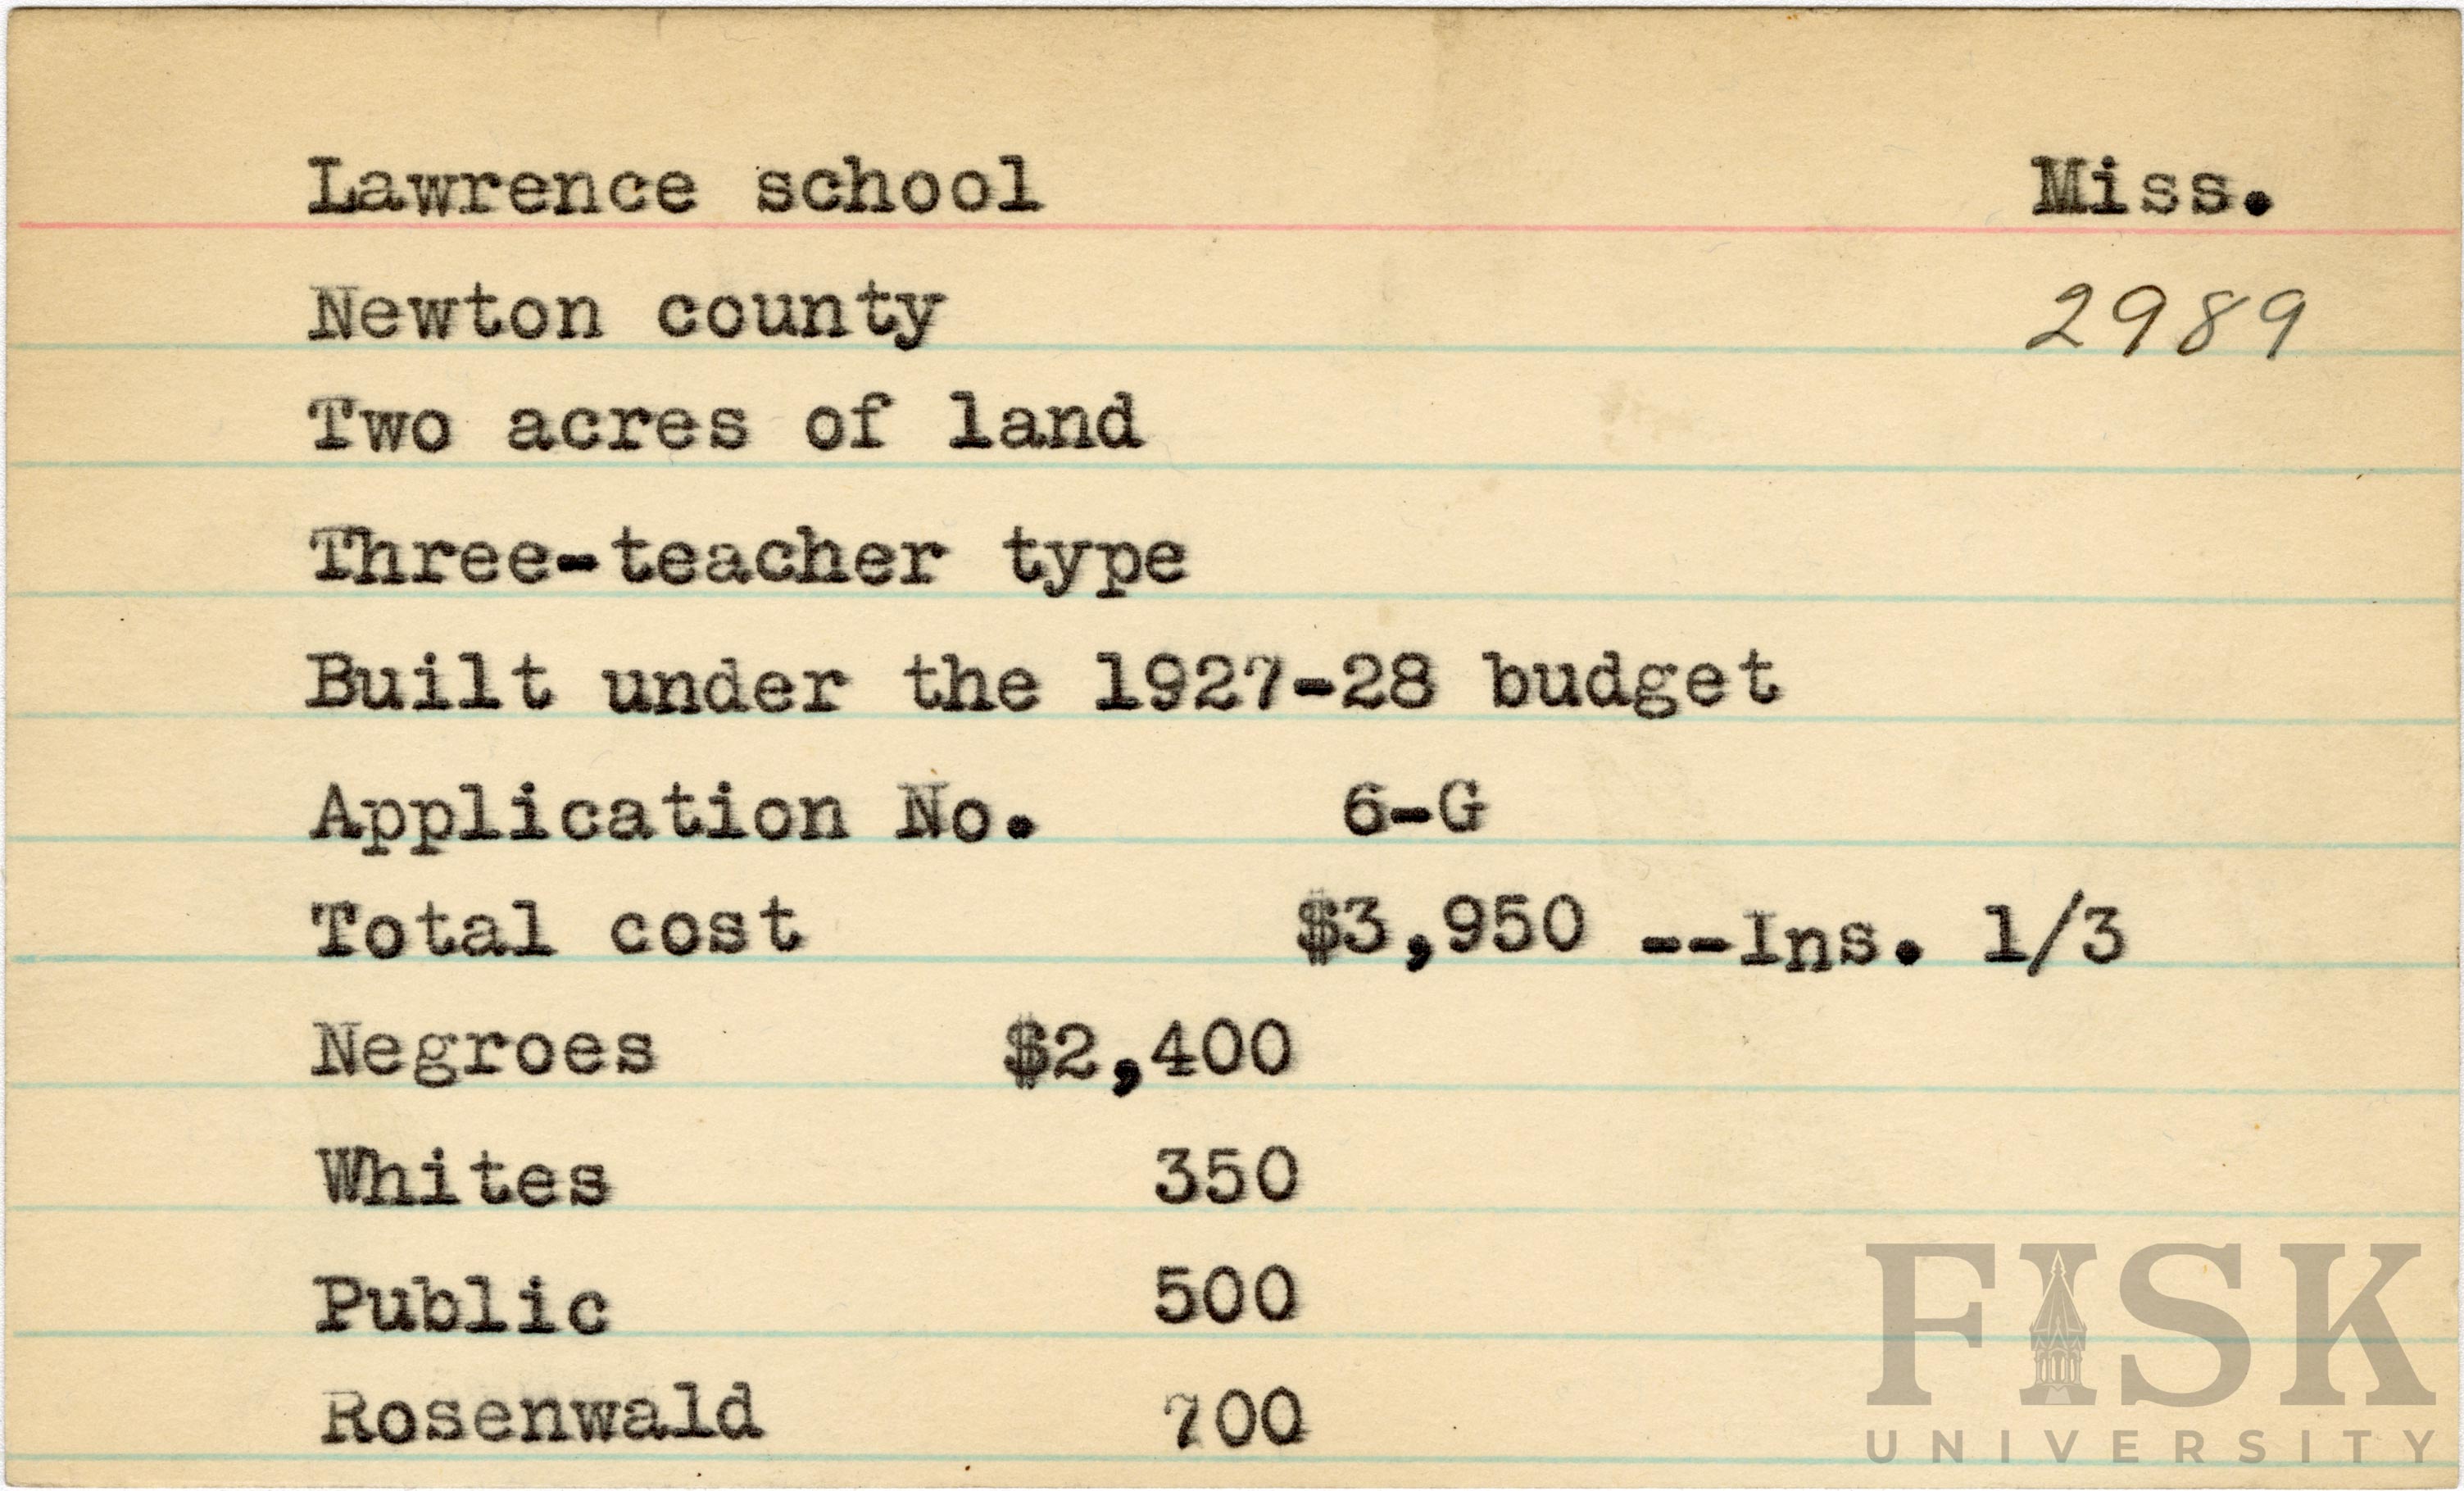 Lawrence school Miss.
Newton county 2989
Two acres of land
Three-teacher type
Built under the 1927-28 budget
Application No. 6-G
Total cost $3,950 --Ins. 1/3
Negroes $2,400
Whites 350
Public 500
Rosenwald 700
FISK
UNIVERSITY